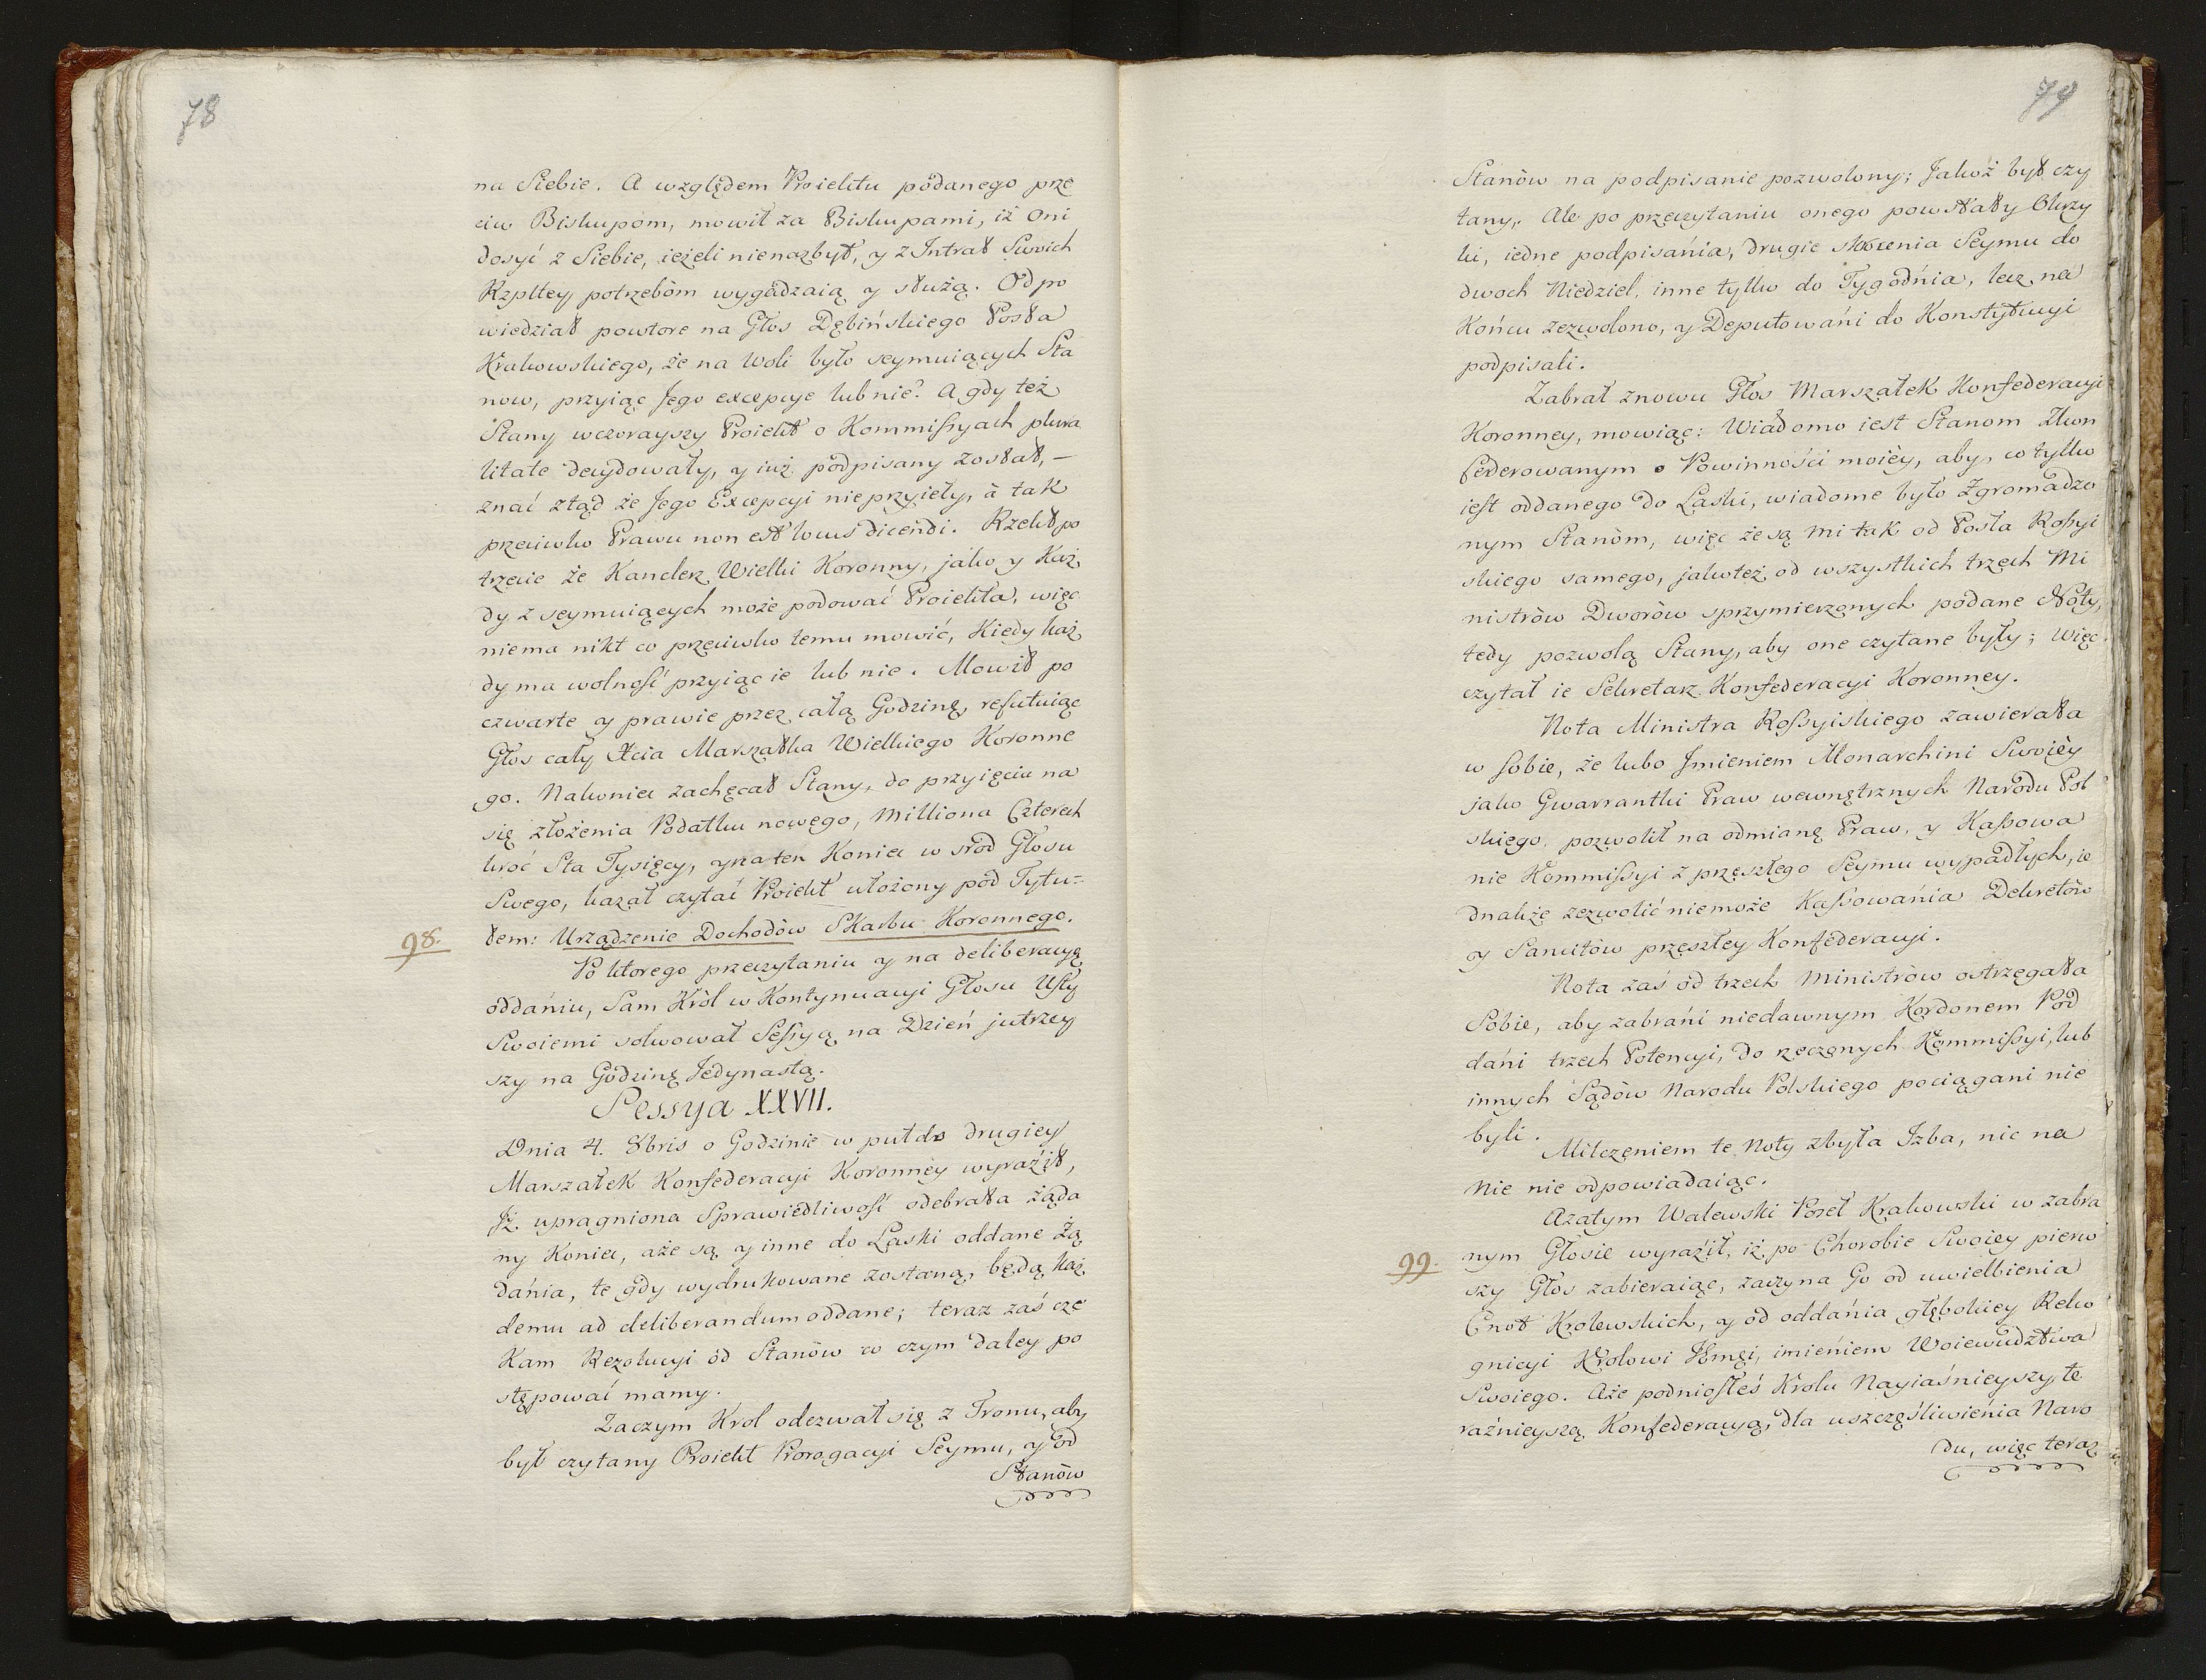 78
na Siebie. A względem Proiektu pòdanego prze
ciw Biskupòm, mowił za Biskupami, iż oni
dosyć z Siebie, ieżeli nienazbyt, y z Intrat Swoich
Rzpltey potrzebòm wygàdzaią y służą. Odpo
wiedział powtore na Głos Dębińskiego Posła
Krakowskiego, że na Woli było seymuiących Sta
now, przyiąc Jego excepcye lub nie. A gdy też
Stany wczorayszy Proiekt o Kommissyach plura
litate decydowały, y iuż pòdpisany został, —
znać ztąd że Jego Excepcyi nieprzyieły, à tak
przeciwko Prawu non est locus dicendi. Rzekł po
trzecie że Kanclerz Wielki Koronny, jako y Każ
dy z seymuiących może podować Proiekta, więc
niema nikt co przeciwko temu mowić, Kiedy każ
dy ma wolność przyiąc ie lub nie. Mowił po
czwarte y prawie przez całą Godzinę, refutuiąc
Głos cały Xcia Marszałka Wielkiego Koronne
go. Nakoniec zachęcał Stany, do przyięcia na
się złożenia Podatku nowego, Milliona Czterech
kroć Sta Tysięcy, y na ten Koniec w sròd Głosu
Swego, kazał czytać Proiekt ułożony pòd Tytu=
98.
łem: Urządzenie Dochodòw Skarbu Koronnego.
Po ktorego przeczytaniu y na deliberacyą
oddaniu, Sam Kròl w Kontynuacyi Głosu Usty
Swoiemi solwował Sessyą na Dzień jutrzey
szy na Godzinę Jedynastą.
Sessya XXVII.
Dnia 4. 8bris o Godzinie w puł do drugiey
Marszałek Konfederacyi Koronney wyraźił,
Jż upragniona Sprawiedliwość odebrała żąda
ny Koniec, aże są y inne do Laski oddane Żą
dania, te gdy wydrukowane zostaną, będą każ
demu ad deliberandum oddane; teraz zaś cze
kam Rezolucyi òd Stanòw w czym daley po
stępować mamy.
Zaczym Krol odezwał się z Tronu, aby
był czytany Proiekt Prorogacyi Seymu, y òd
Stanòw
79
Stanòw na podpisanie pozwolony; Jakoż był czy
tany. Ale po przeczytaniu onego powstały Okrzy
ki, iedne podpisània, drugie skrocenia Seymu do
dwoch Niedziel, inne tylko do Tygodnia, lecz na
Końcu zezwolono, y Deputowani do Konstytucyi
podpisali.
Zabrał znowu Głos Marszałek Konfederacyi
Koronney, mowiąc: Wiadomo iest Stanom Zkon
federowanym o Powinności moiey, aby, co tylko
iest oddanego do Laski, wiadome było Zgromadzo
nym Stanòm, więc że są mi tak od Posła Rossyi
skiego samego, jakoteż od wszystkich trzech Mi
nistròw Dworòw sprzymierzonych pòdane Noty,
tedy pozwolą Stany, aby one czytane były; więc
czytał ie Sekretarz Konfederacyi Koronney.
Nota Ministra Rossyiskiego zawierała
w sobie, że lubo Jmieniem Monarchini Swoiey
jako Gwarrantki Praw wewnętrznych Narodu Pol
skiego, pozwolił na odmianę Praw, y Kassowa
nie Kommissyi z przeszłego Seymu wypadłych, ie
dnakże zezwolić niemoże Kassowània Dekretòw
y Sancitòw przeszłey Konfederacyi.
Nota zaś òd trzech Ministròw ostrzegała
Sobie, aby zabràni niedawnym Kordonem Pod
dani trzech Potencyi, do rzeczonych Kommissyi, lub
innych Sądòw Narodu Polskiego pociągani nie
byli.
Milczeniem te Noty zbyła Izba, nic na
nie nie odpowiadaiąc.
Azatym Walewski Poseł Krakowski w zabra
99.
nym Głosie wyraźił, iż po Chorobie Swoiey pierw
szy Głos zabieraiąc, zaczyna Go od uwielbienia
Cnot Krolewskich, y òd oddània głębokiey Reko
gnicyi Krolowi Jmci, imieniem Woiewudztwa
Swoiego. Aże podniosłeś Krolu Nayiaśnieyszy, te
raźnieyszą Konfederacyą, dla uszczęśliwienia Naro
du, więc teraz